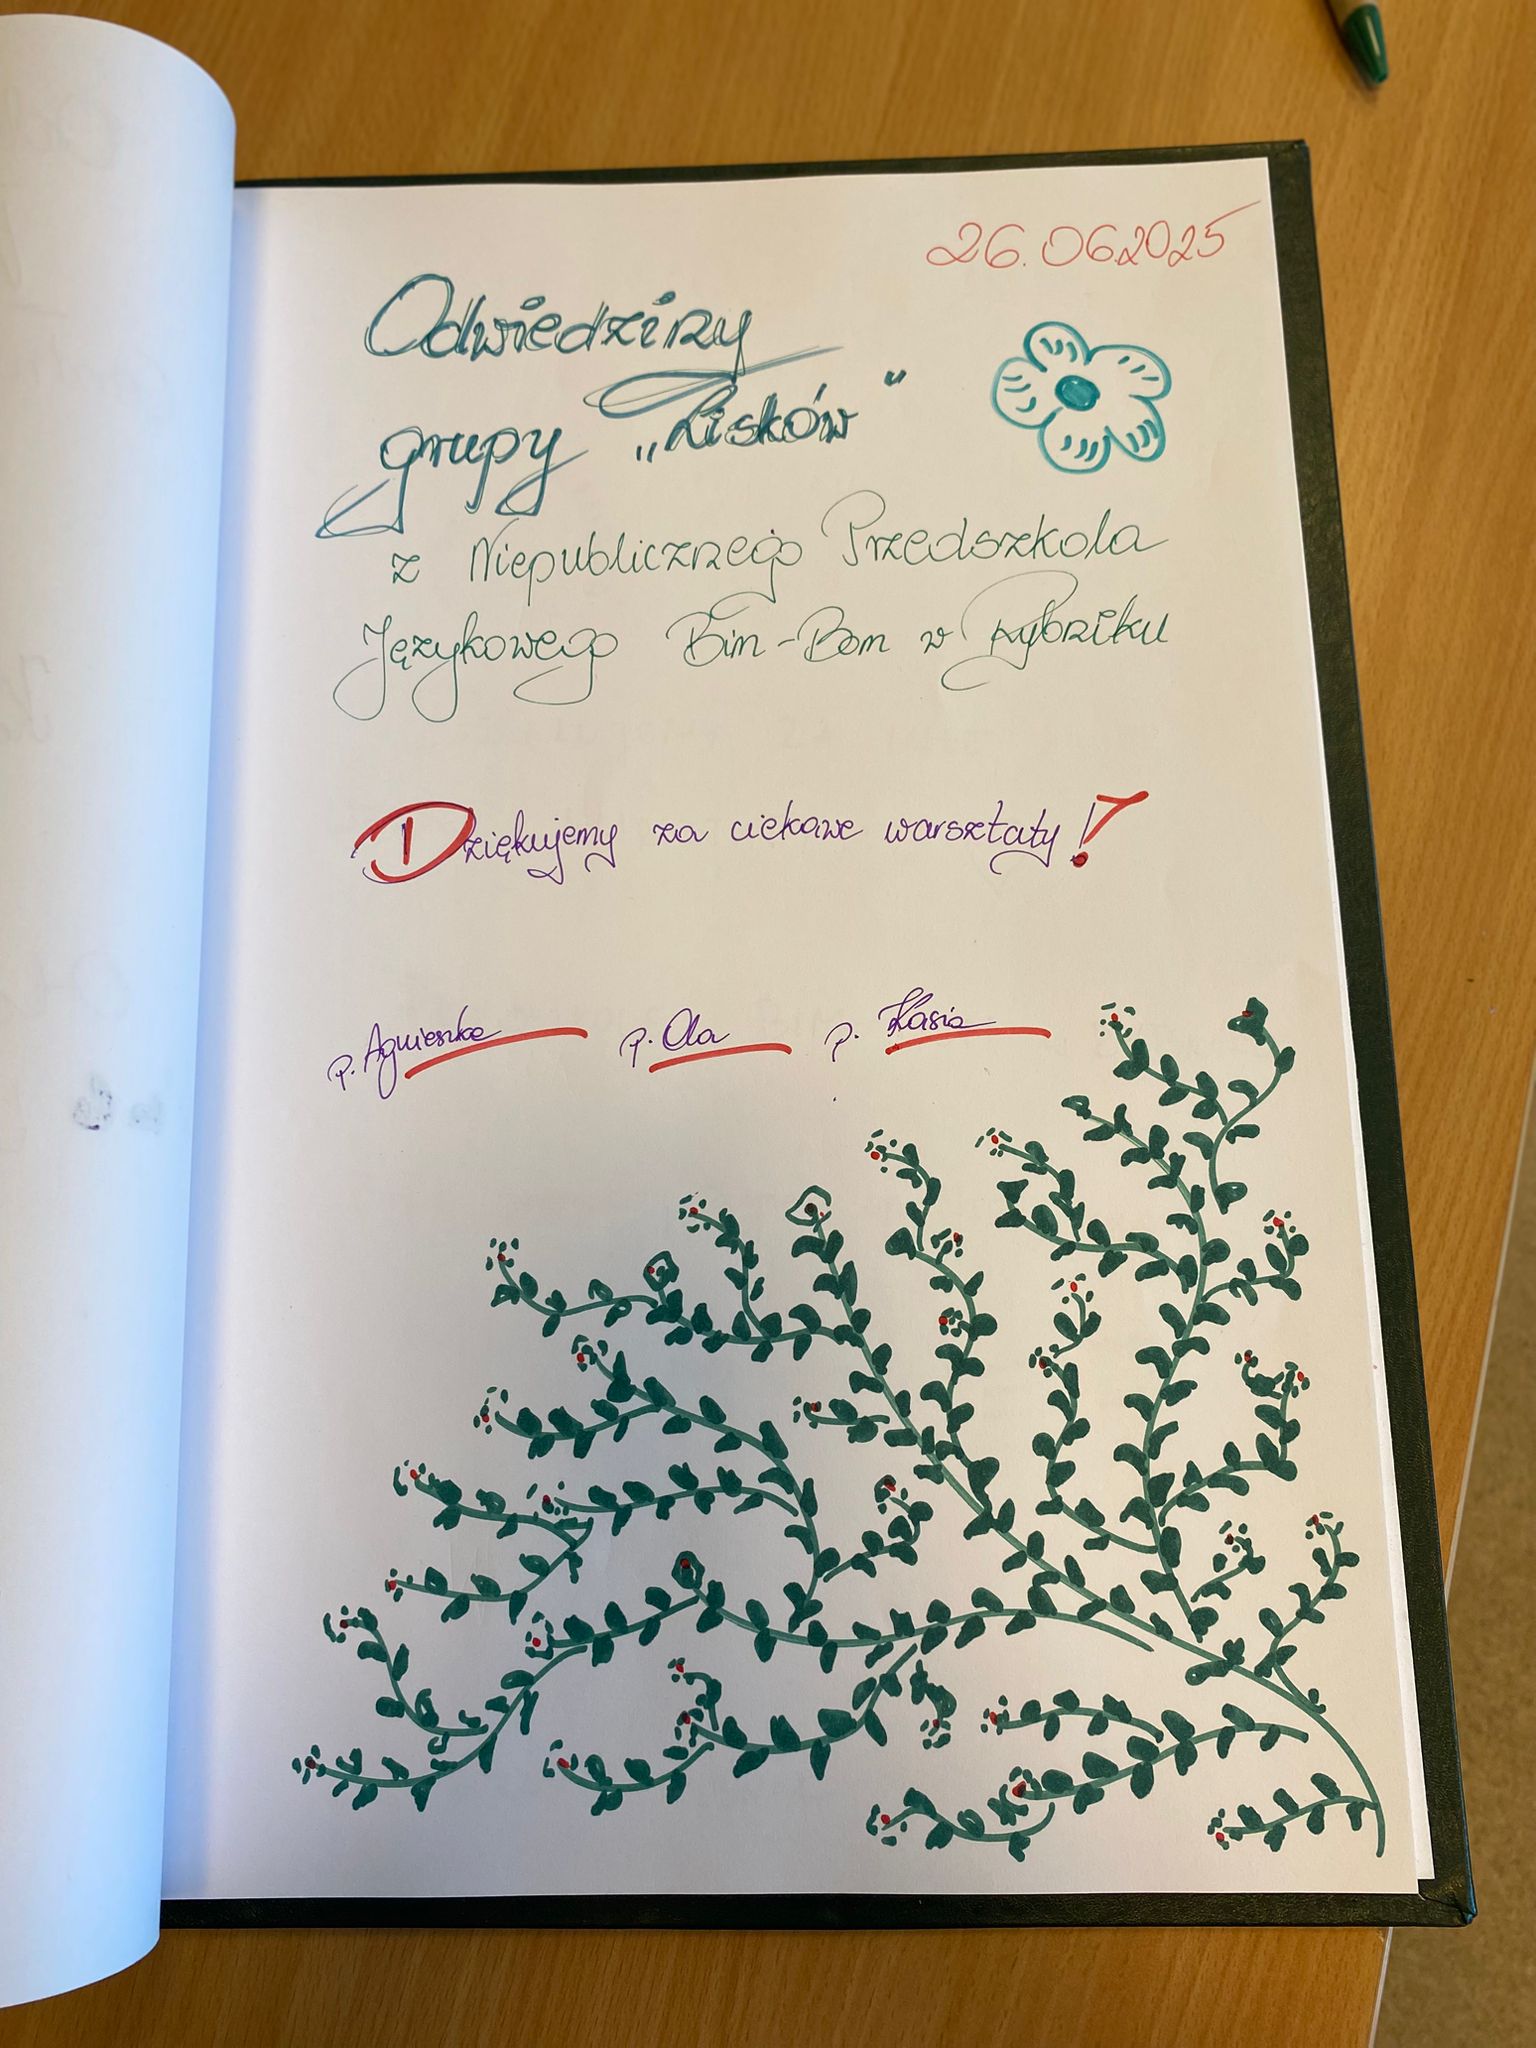 26.06.2025
Odwiedziny
grupy „Lisków"
z Niepublicznego Przedszkola
Językowego Bim-Bom w Rybniku
Dziękujemy za ciekawe warsztaty!
p. Agnieszka p. Ola p. Kasia